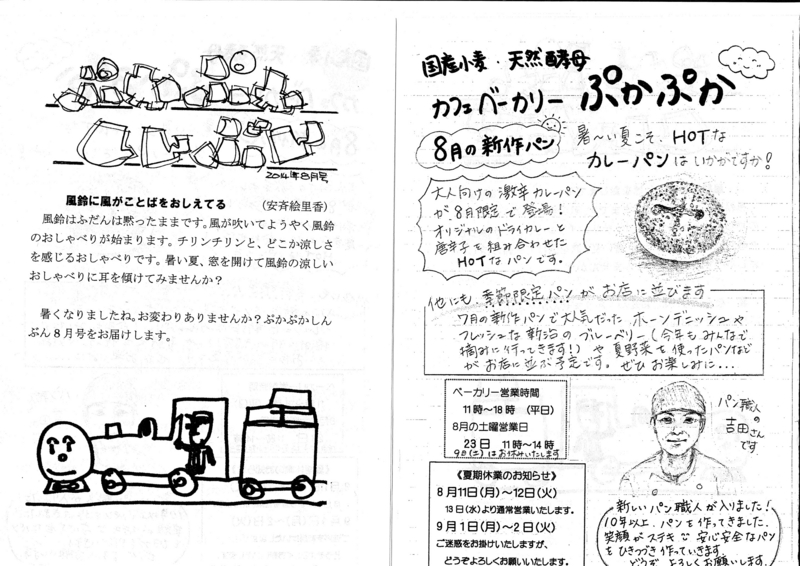 ぷかぷか
しんぶん
2014年8月号
風鈴に風がことばをおしえてる　（安斉絵里香）
風鈴はふだんは黙ったままです。風が吹いてようやく風鈴
のおしゃべりが始まります。チリンチリンと、どこか涼しさ
を感じるおしゃべりです。暑い夏、窓を開けて風鈴の涼しい
おしゃべりに耳を傾けてみませんか？
暑くなりましたね。お変わりありませんか？ぷかぷかしん
ぶん８月号をお届けします。
国産小麦・天然酵母
カフェベーカリー ぷかぷか
8月の新作パン
暑〜い夏こそ、HOTな
カレーパンはいかがですか？
大人向けの激辛カレーパン
が8月限定で登場！
オリジナルのドライカレーと
唐辛子を組み合わせた
HOTなパンです。
他にも、季節限定パンがお店に並びます
7月の新作パンで大人気だった ホーンデニッシュや
フレッシュな新治の ブルーベリー（今年も みんなで
摘みに行ってきます！）や 夏野菜を使ったパンなど
がお店に並ぶ予定です。ぜひお楽しみに...
ベーカリー営業時間
11時〜18時　（平日）
8月の土曜営業日
23日　11時〜14時
9日(土)はお休みいたします
《夏期休業のお知らせ》
8月11日(月)〜12日(火)
13日(水)より通常営業いたします。
9月1日(月)〜2日(火)
ご迷惑をお掛けいたしますが、
どうぞよろしくお願いいたします。
パン職人
の
吉田さん
です
新しいパン職人が入りました！
10年以上、パンを作ってきました。
笑顔がステキ 安心安全なパン
をひきつづき作っていきます。
どうぞ よろしくお願いします。